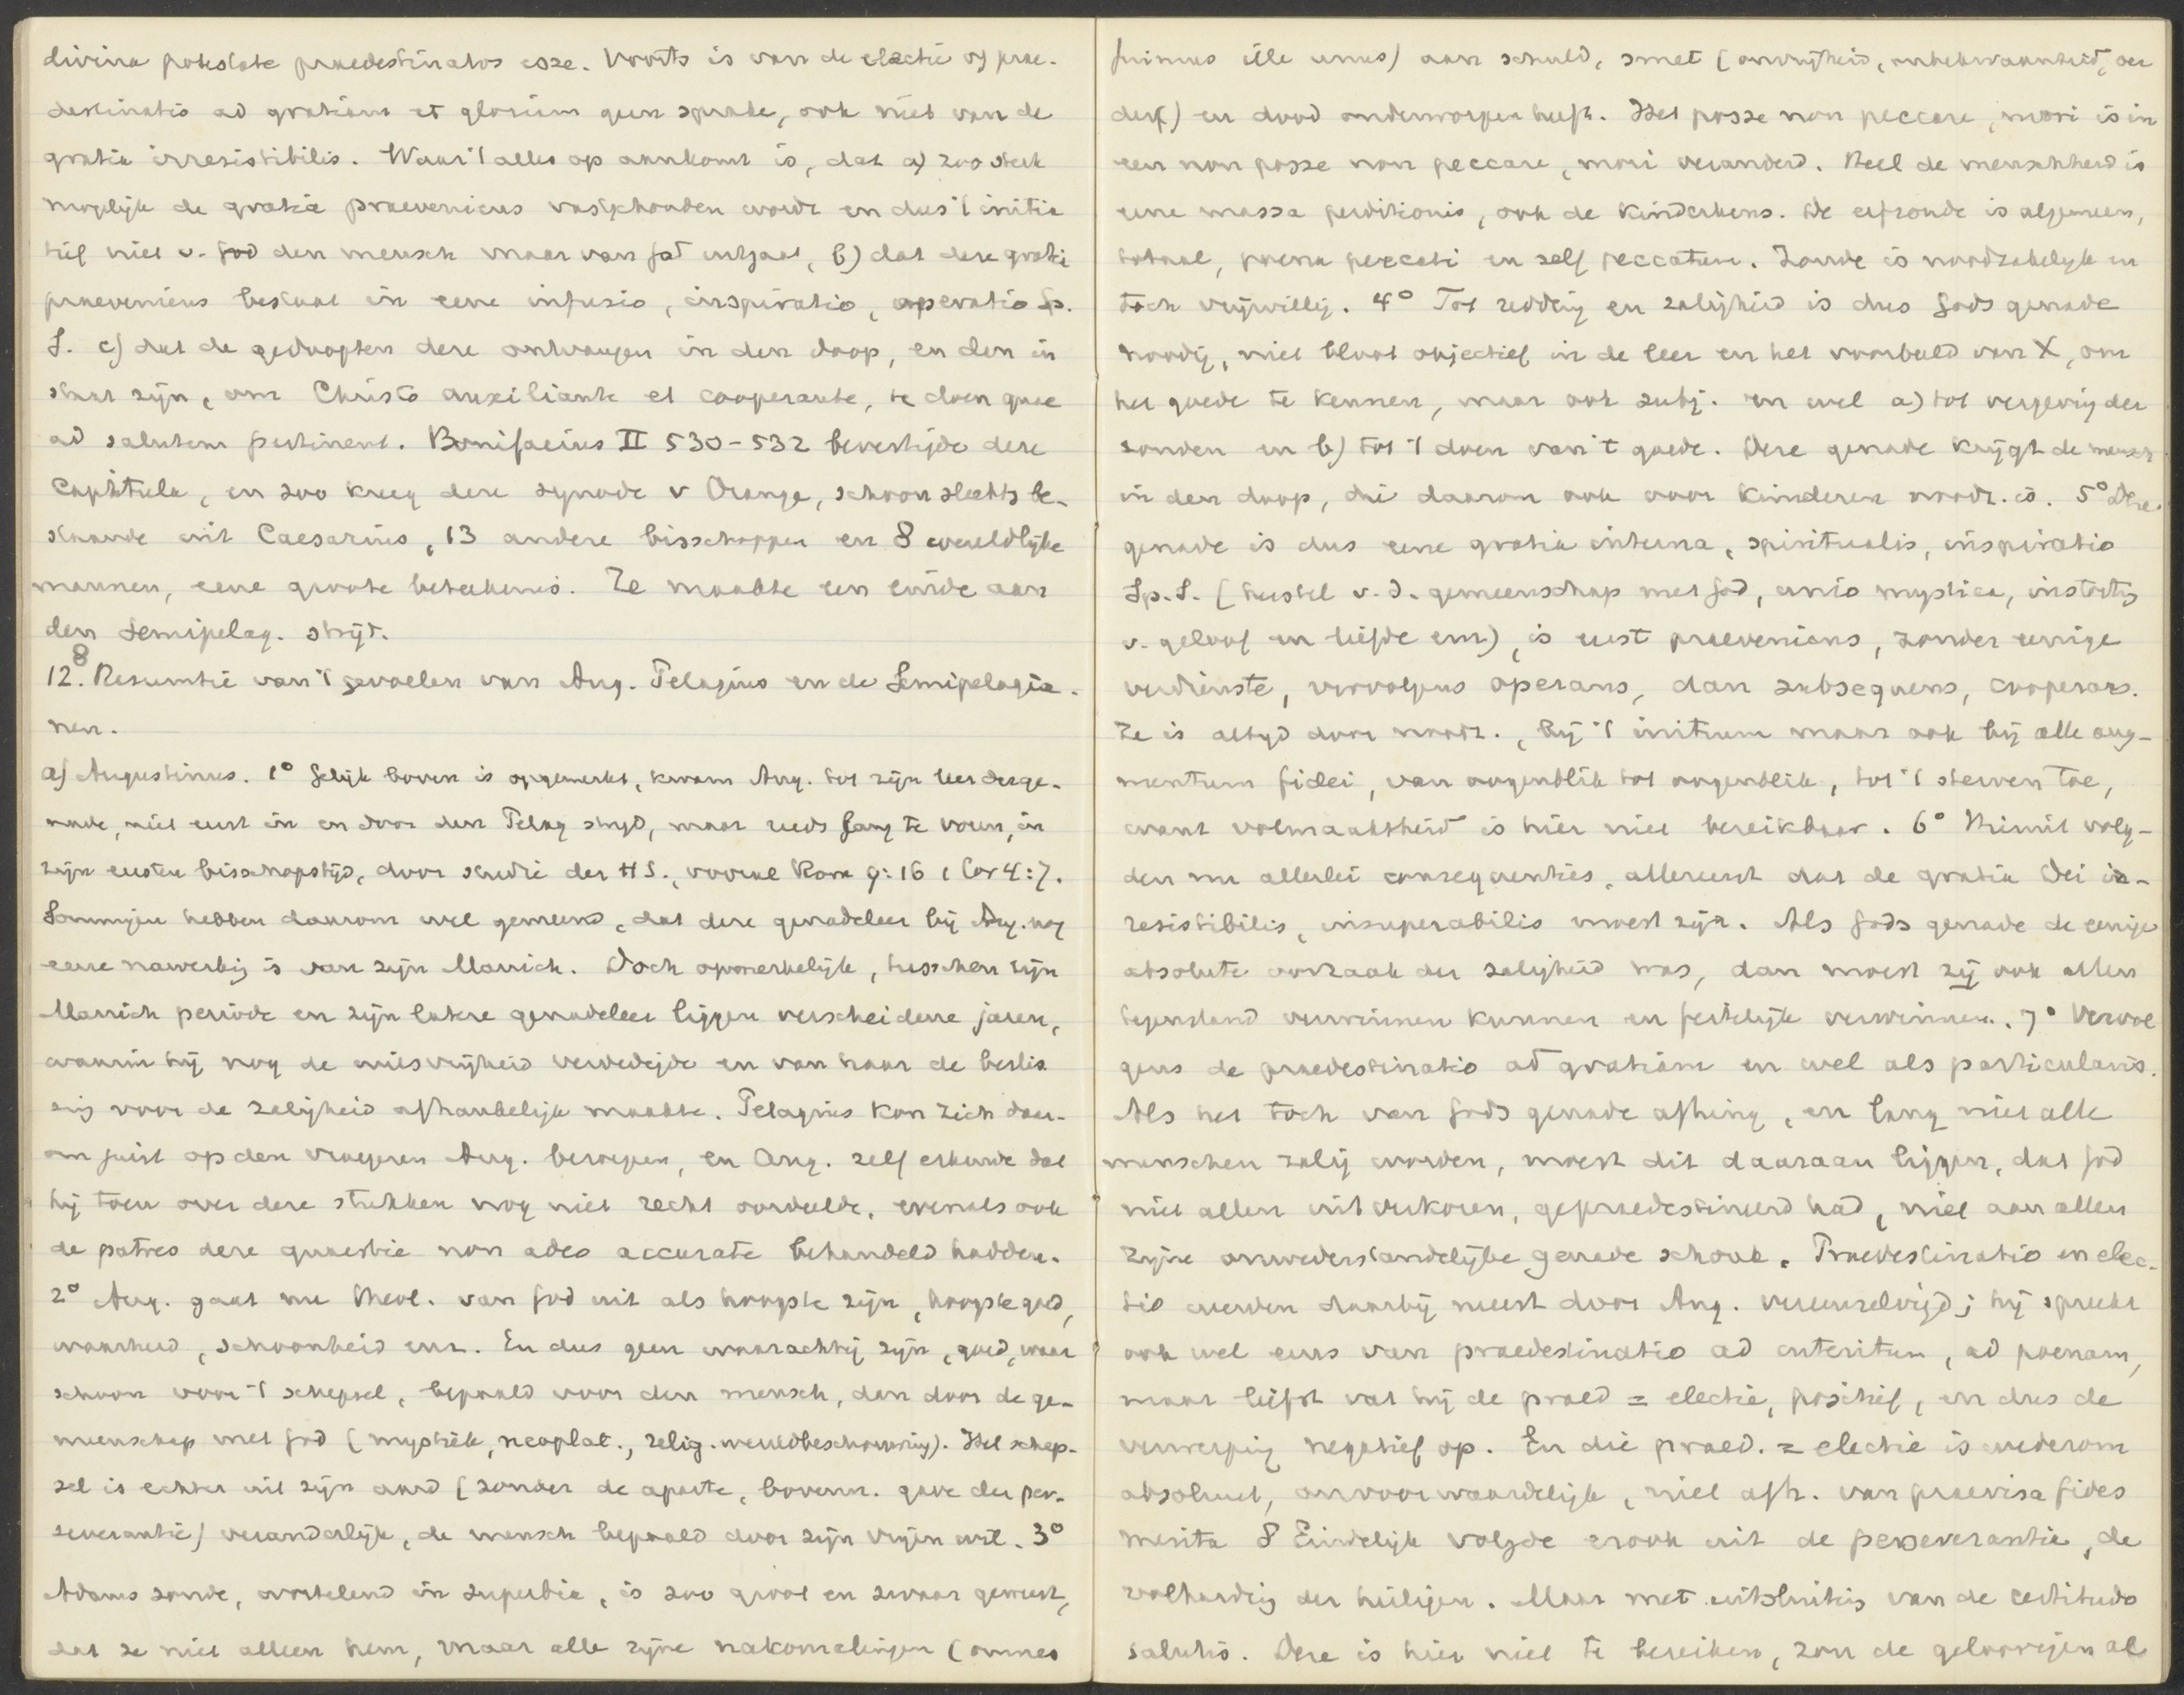 divina potestate praedestinatos esse. Voorts is van de electie of prae-
destinatio ad gratiam et gloriam geen sprake, ook niet van de
gratia irresistibilis. Waar 't alles op aankomt is, dat a) zoo sterk
mogelijk de gratia praeveniens vastgehouden wordt en dus 't initia
tief niet v. God den mensch maar van God uitgaat, b) dat deze grati
praeveniens bestaat in eene infusio, inspiratio, operatio Sp.
S. c) dat de gedoopten deze ontvangen in den doop, en dan in
staat zijn, om Christo auxiliante et cooperante, te doen quae
ad salutem pertinent. Bonifacius II 530-532 bevestigde deze
Capitula, en zoo kreeg deze synode v Orange, schoon slechts be-
staande uit Caesarius, 13 andere bisschoppen en 8 wereldlijke
mannen, eene groote beteekenis. Ze maakte een einde aan
den Semipelag. strijd.
8
12. Resumtie van 't gevoelen van Aug. Pelagius en de Semipelagia-
nen.
a) Augustinus. 1° Gelijk boven is opgemerkt, kwam Aug. tot zijn leer der ge-
nade, niet eerst in en door den Pelag strijd, maar reeds lang te voren, in
zijn eersten bisschopstijd, door studie der HS., vooral Rom 9:16 1 Cor 4:7.
Sommigen hebben daarom wel gemeend, dat deze genadeleer bij Aug. nog
eene nawerking is van zijn Manich. Doch opmerkelijk, tusschen zijn
Manich periode en zijn latere genadeleer liggen verscheidene jaren,
waarin hij nog de wilsvrijheid verdedigde en van haar de beslis
sing voor de zaligheid afhankelijk maakte. Pelagius kon zich daar-
om juist op den vroegeren Aug. beroepen, en Aug. zelf erkende dat
hij toen over deze stukken nog niet recht oordeelde, evenals ook
de patres deze quaestie non adeo accurate behandeld hadden.
2° Aug. gaat nu theol. van God uit als hoogste zijn, hoogste goed,
waarheid, schoonheid enz. En dus geen waarachtig zijn, goed, waar
schoon voor 't schepsel, bepaald voor den mensch, dan door de ge-
meenschap met God (mystiek, neoplat., relig. wereldbeschouwing). Het schep-
sel is echter uit zijn aard (zonder de aparte, bovenn. gave der per-
severantie) veranderlijk, de mensch bepaald door zijn vrijen wil. 3°
Adams zonde, wortelend in superbia, is zoo groot en zwaar geweest,
dat ze niet alleen hem, maar alle zijne nakomelingen (omnes
fuimus ille unus) aan schuld, smet (onvrijheid, onbekwaamheid, ver
derf) en dood onderworpen heeft. Het posse non peccare, mori is in
een non posse non peccare, mori veranderd. Heel de menschheid is
eene massa perditionis, ook de kinderkens. De erfzonde is algemeen,
totaal, poena peccati en zelf peccatum. Zonde is noodzakelijk en
toch vrijwillig. 4° Tot redding en zaligheid is dus Gods genade
noodig, niet bloot objectief in de leer en het voorbeeld van X, om
het goede te kennen, maar ook subj. en wel a) tot vergeving der
zonden en b) tot 't doen van 't goede. Deze genade krijgt de mensch
in den doop, die daarom ook voor kinderen noodz. is. 5° Deze
genade is dus eene gratia interna, spiritualis, inspiratio
Sp.S. (herstel v.d. gemeenschap met God, unio mystica, instorting
v. geloof en liefde enz), is eerst praeveniens, zonder eenige
verdienste, vervolgens operans, dan subsequens, cooperans.
Ze is altijd door noodz., bij 't initium maar ook bij alle aug-
mentum fidei, van oogenblik tot oogenblik, tot 't sterven toe,
want volmaaktheid is hier niet bereikbaar. 6° Hieruit volg-
den nu allerlei consequenties, allereerst dat de gratia Dei ir-
resistibilis, insuperabilis moest zijn. Als Gods genade de eenige
absolute oorzaak der zaligheid was, dan moest zij ook allen
tegenstand verwinnen kunnen en feitelijk verwinnen. 7° Vervol
gens de praedestinatio ad gratiam en wel als particularis.
Als het toch van Gods genade afhing, en lang niet alle
menschen zalig worden, moest dit daaraan liggen, dat God
niet allen uitverkoren, gepraedestineerd had, niet aan allen
zijne onwederstandelijke genade schonk. Praedestinatio en elec-
tio werden daarbij meest door Aug. vereenzelvigd; hij spreekt
ook wel eens van praedestinatio ad interitum, ad poenam,
maar liefst vat hij de praed = electie, positief, en dus de
verwerping negatief op. En die praed. = electie is wederom
absoluut, onvoorwaardelijk, niet afh. van praevisa fides
merita 8 Eindelijk volgde er ook uit de perseverantia, de
volharding der heiligen. Maar met uitsluiting van de certitudo
salutis. Deze is hier niet te bereiken, zou de geloovigen al